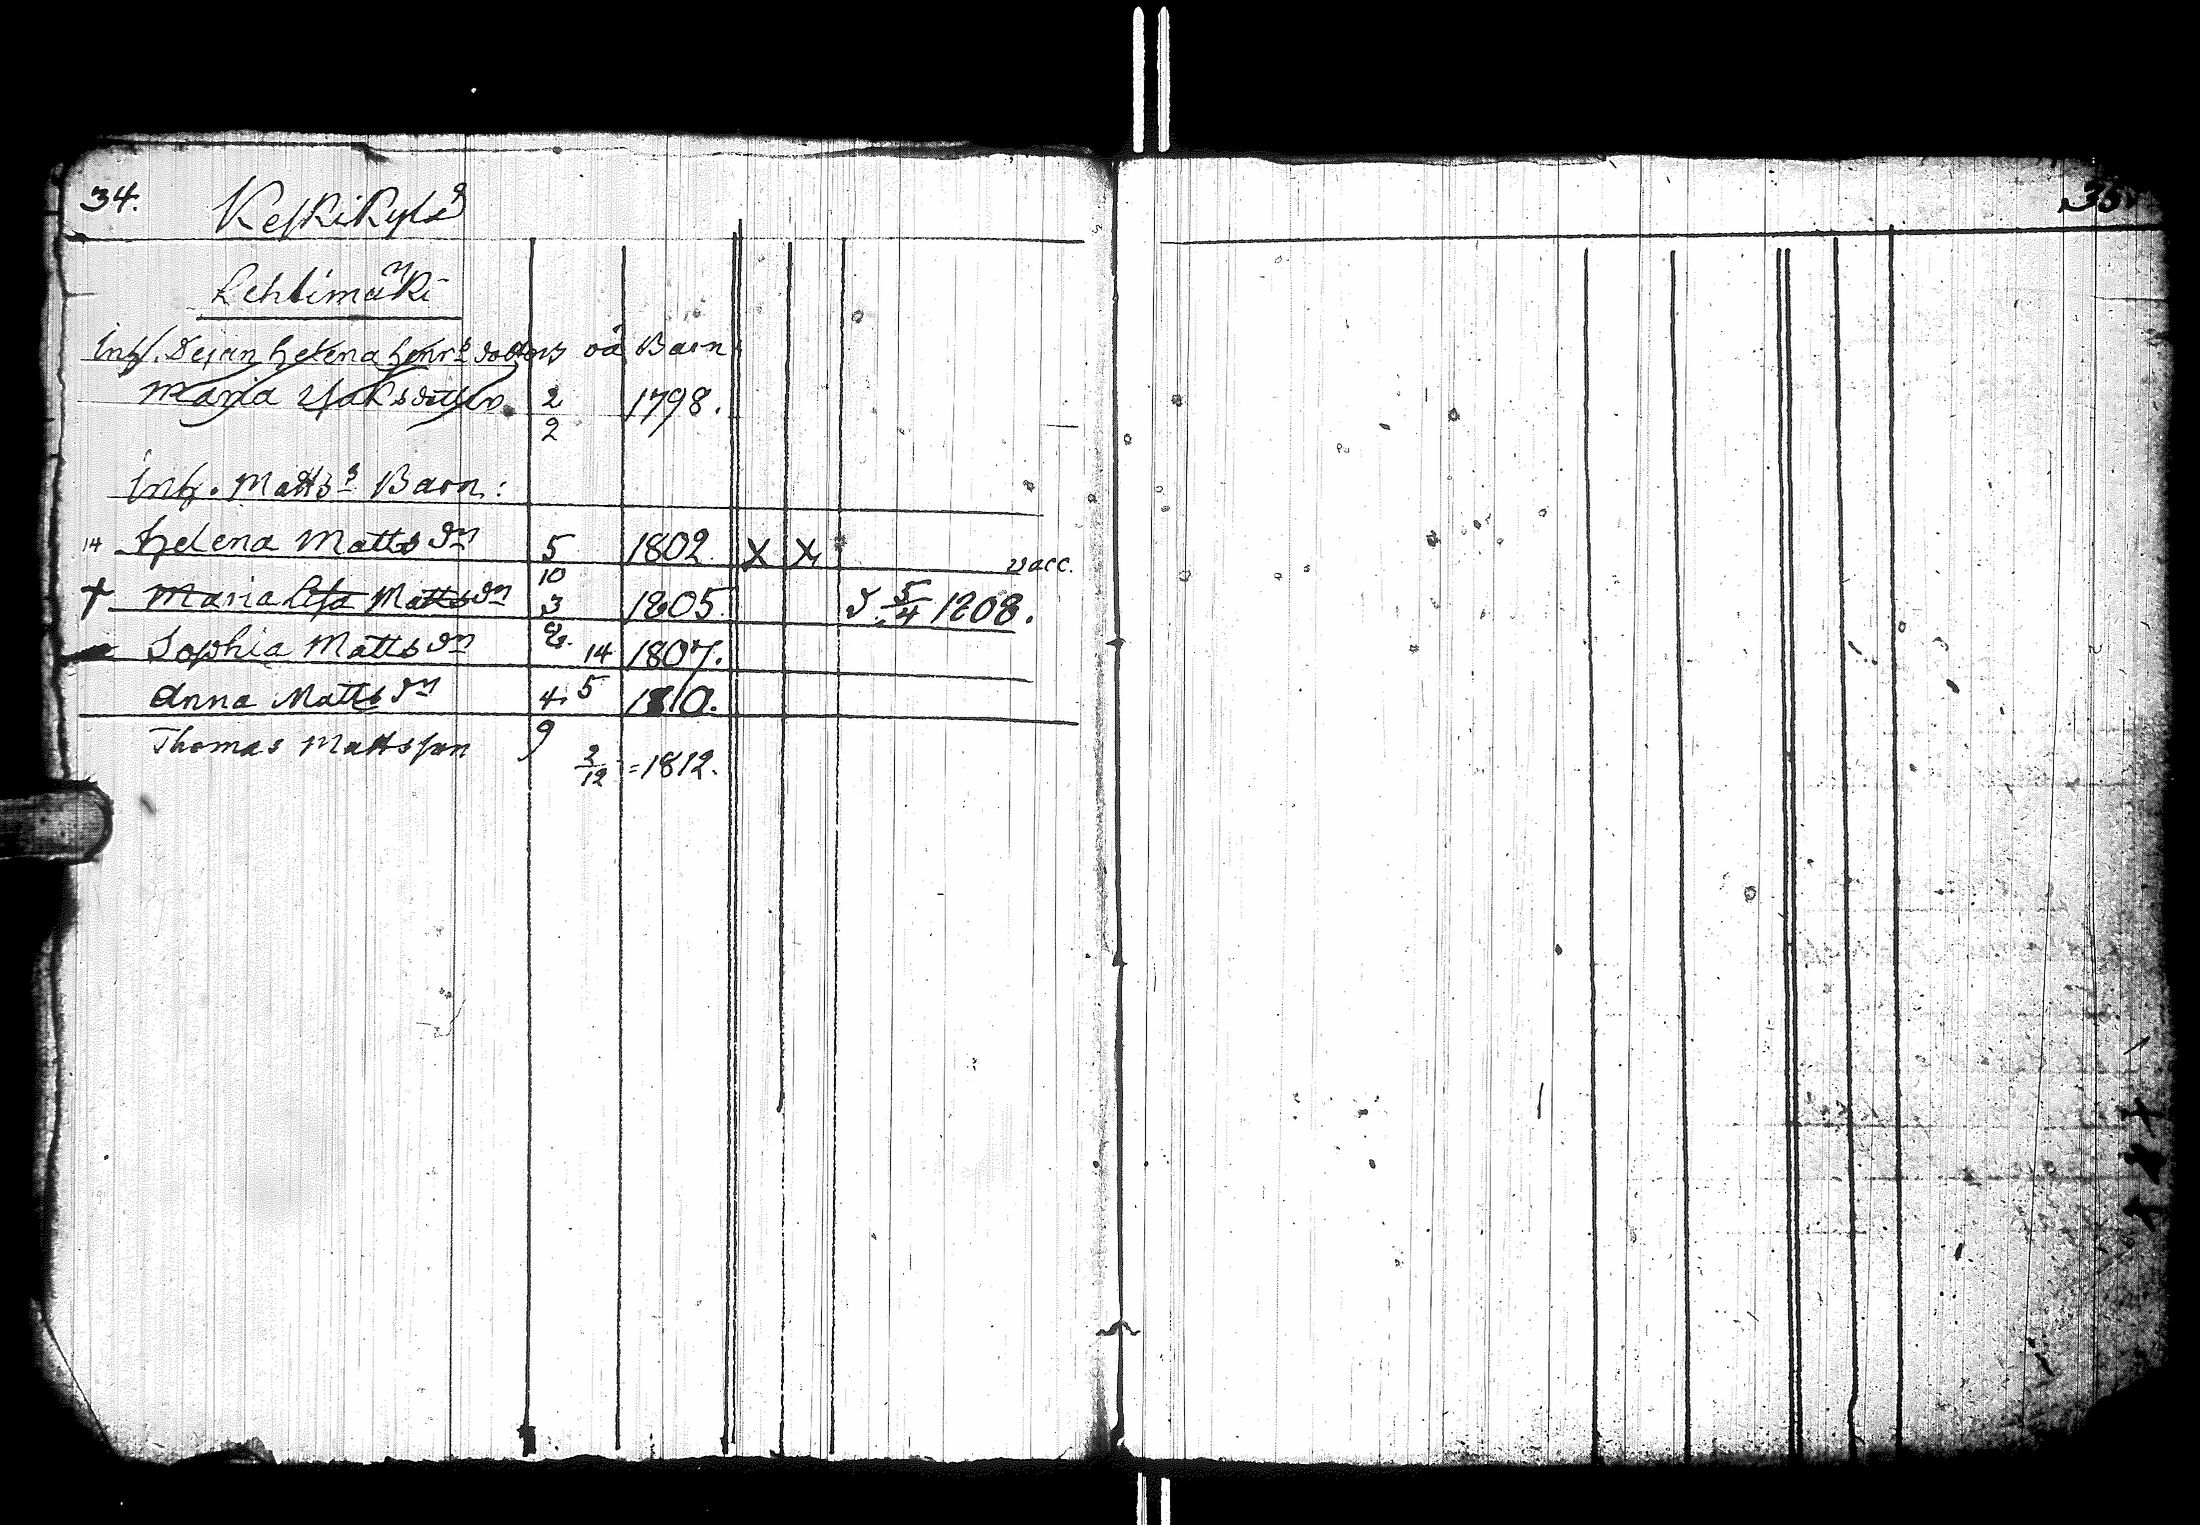 34.
Keskikylä
Lehtimäki
Inh. Helena Henrs dotters oä Barn
Maria 2 1798.
2
Inh. Matts s Barn:
14 Helena Matts dn 5 1802 X X vacc.
10
† Maria Lisa Matts dn 3 1805. d. 5/4 1808.
Sophia Matts dn 8. 14 1807.
Anna Matts dn 4. 5 1810.
Thomas Mattsson 9 2/12 = 1812.
35